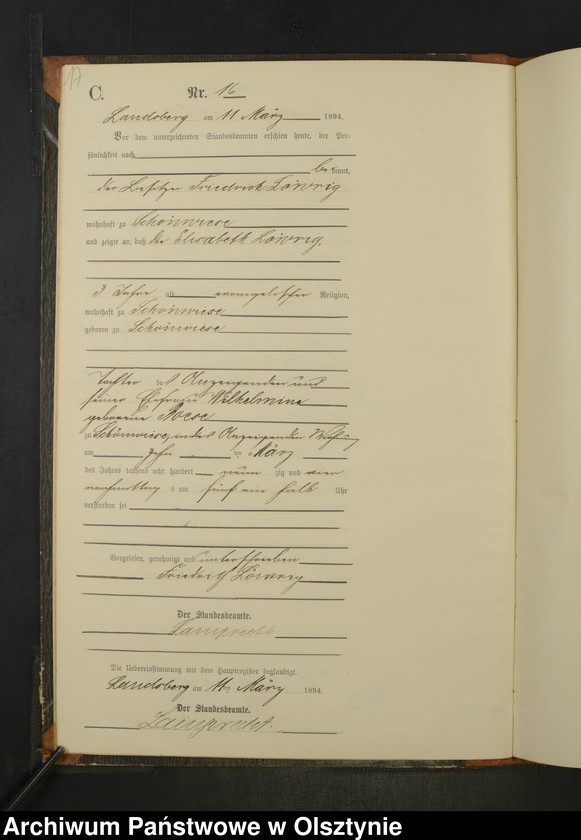 17
C.
Nr. 16
Landsberg am 11 März 1894.
Vor dem unterzeichneten Standesbeamten erschien heute, der Per-
sönlichkeit nach
be kannt,
der Besitzer Friedrich Löwrig
wohnhaft zu Schönwiese
und zeigte an, daß die Elisabeth Löwrig,
3 Jahre alt evangelischer Religion,
wohnhaft zu Schönwiese
geboren zu Schönwiese
Tochter des Anzeigenden und
seiner Ehefrau Wilhelmine
geborene
zu Schönwiese, in des Anzeigenden Wohnung
am zehn ten März
des Jahres tausend acht hundert neun zig und vier
nachmittags um fünf ein halb Uhr
verstorben sei
Vorgelesen, genehmigt und unterschrieben
Friedrich Löwrig
Der Standesbeamte.
Lamprecht
Die Uebereinstimmung mit dem Hauptregister beglaubigt.
Landsberg am 11. März 1894.
Der Standesbeamte.
Lamprecht.
Archiwum Państwowe w Olsztynie